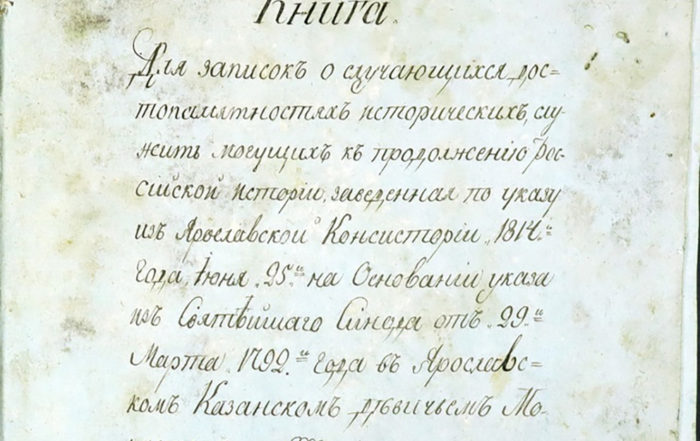 Книга.
Для записокъ о случающихся дос-
топамятностяхъ историческихъ, слу-
жить могущихъ къ продолженію Рос-
сійской исторіи, заведенная по указу
изъ Ярославской Консисторіи „1814.го
года, Іюня „25.го на Основаніи указа
изъ Святѣйшаго Сѵнода отъ „29.го
Марта „1792.го года въ Ярославс-
комъ Казанскомъ дѣвичьемъ Мо-